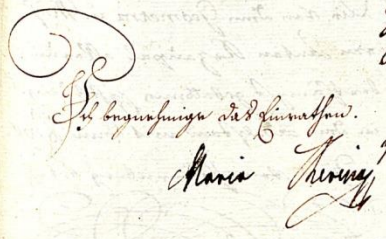 Ich begnehmige das Einrathen.
Maria Theresia